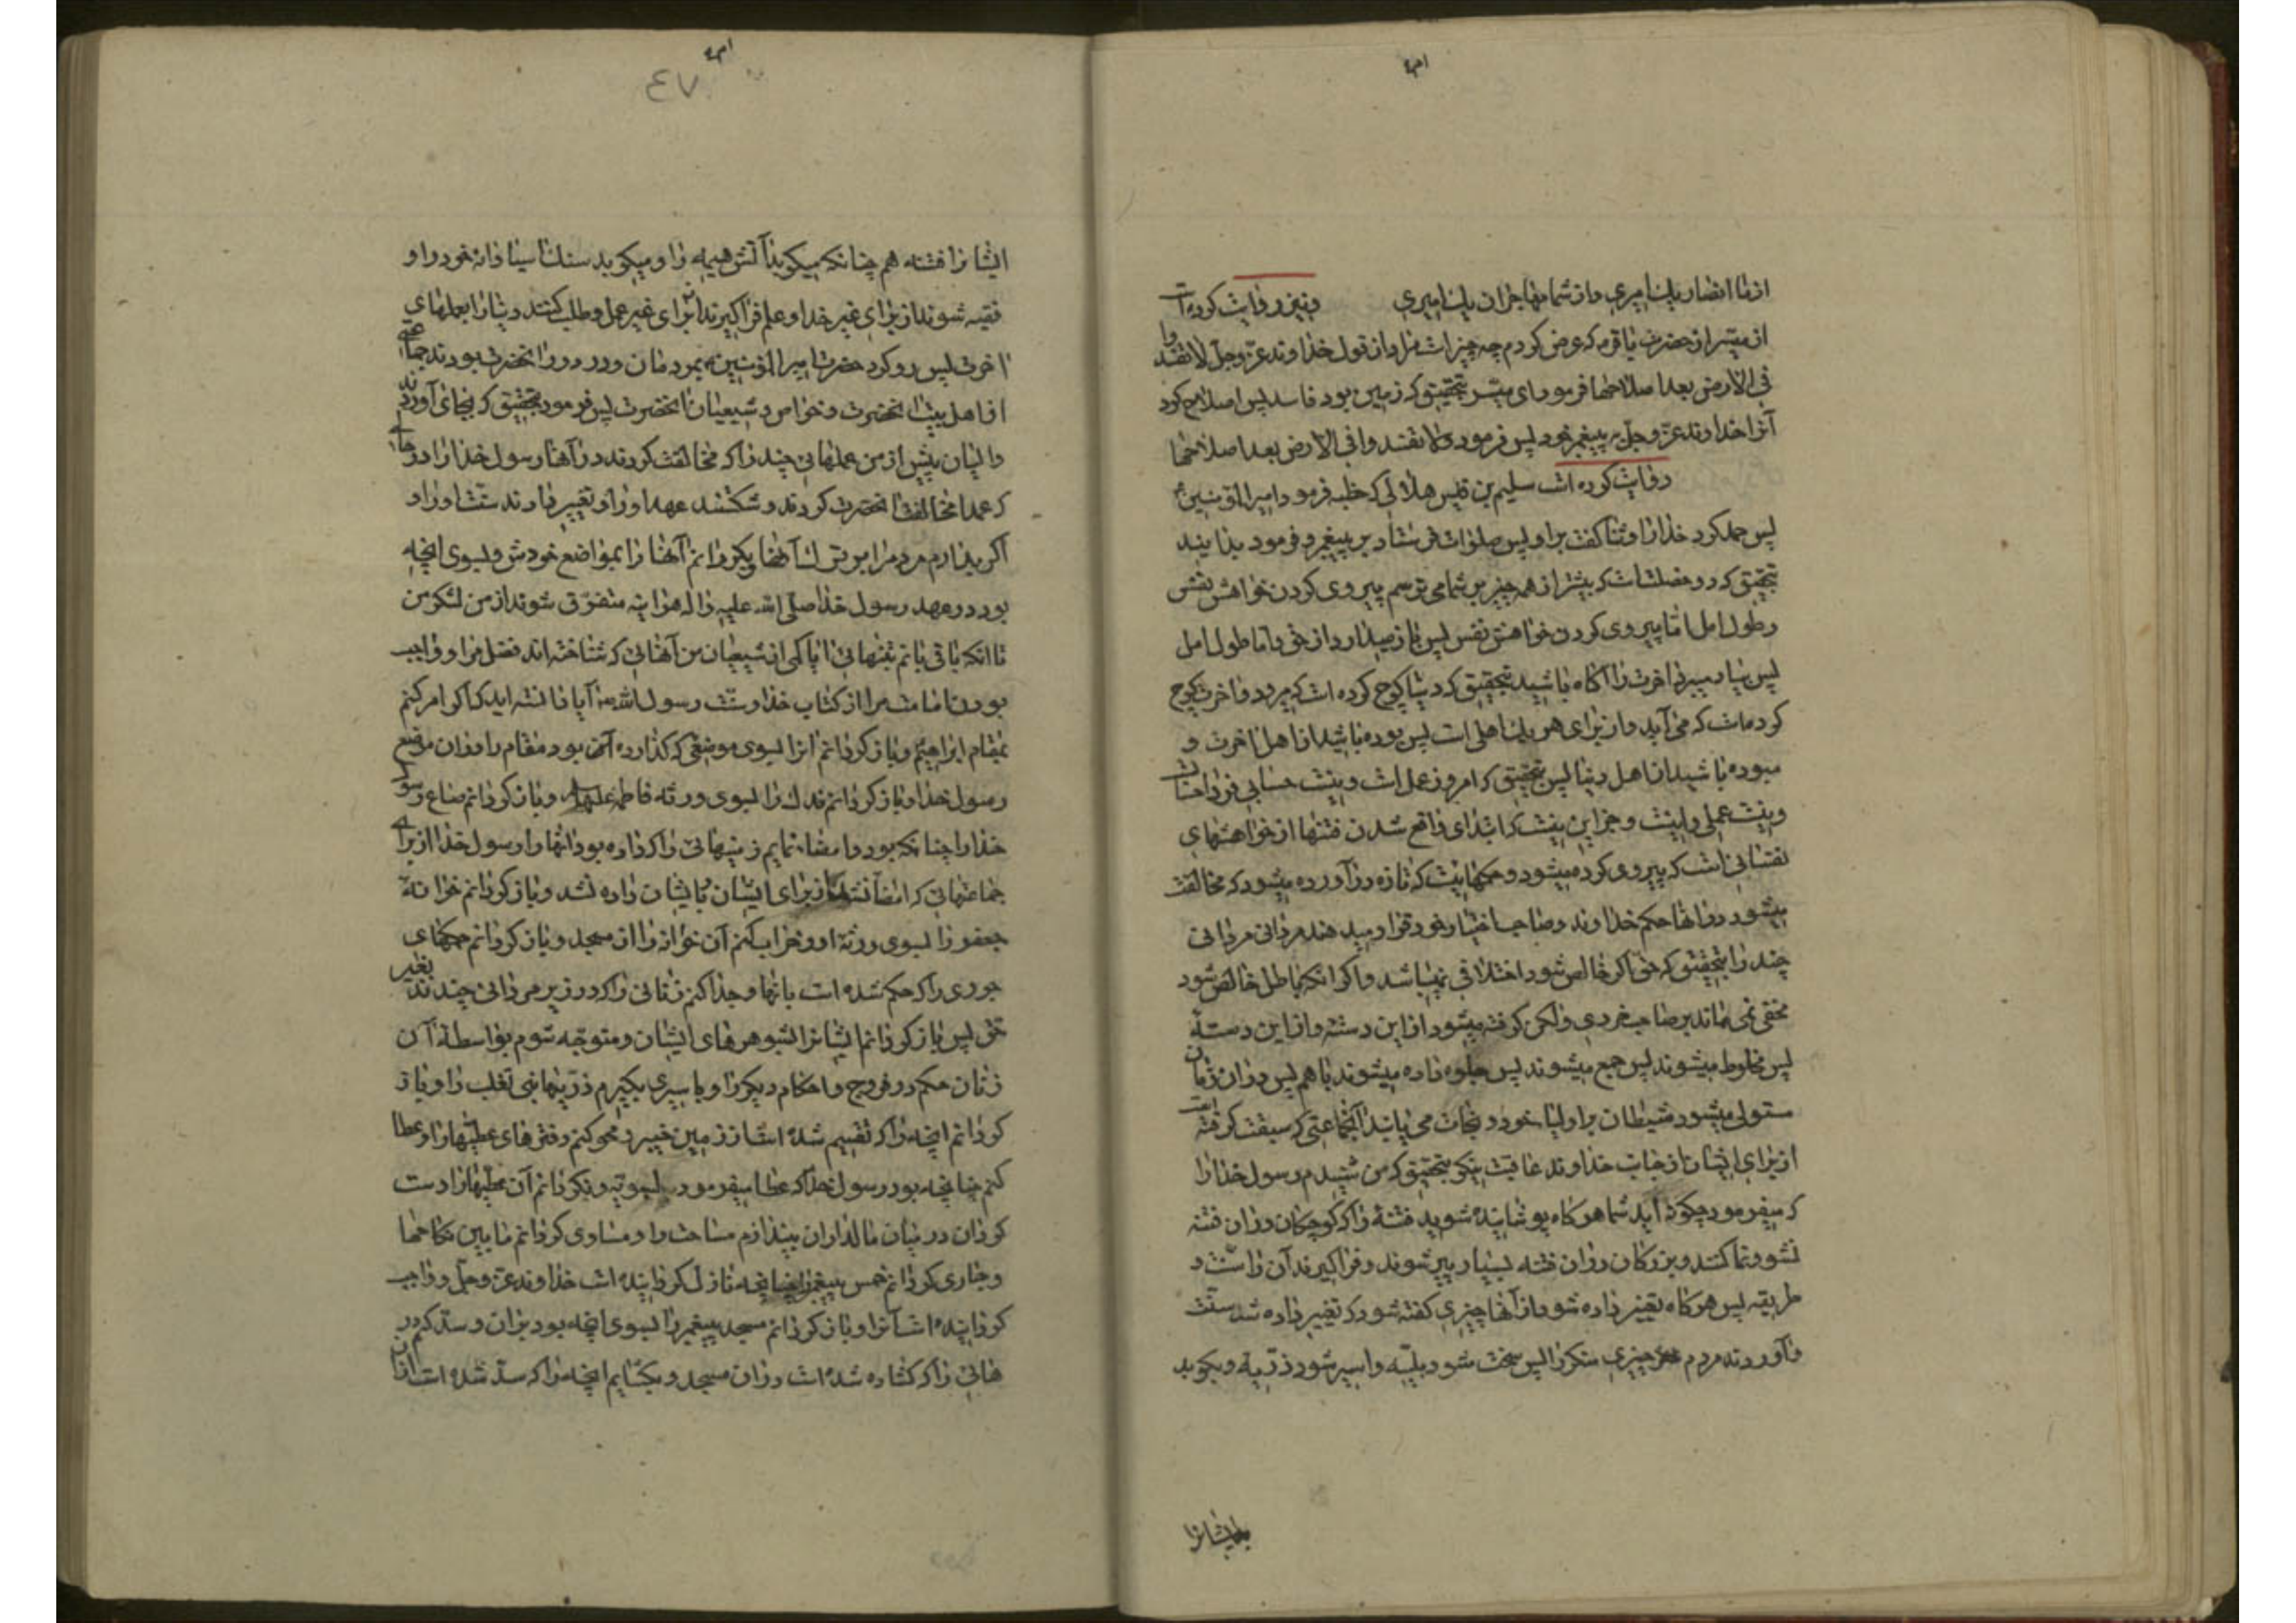 از ما انصار یک امیری و از شما مهاجران یک امیری ونیز روایت کرده است
از میسر از حضرت باقر م که عرض کردم چه چیز است مراد از قول خداوند عزّ وجلّ لا تفسدوا
فی الارض بعد اصلاحها فرمود ای میسر بتحقیق که زمین بود فاسد پس اصلاح کرد
آنرا خداوند عزّ وجلّ به پیغمبر خود پس فرمود که لا تفسدوا فی الارض بعد اصلاحها
روایت کرده است سلیم بن قیس هلالی که خطبه فرمود امیرالمؤمنین ع
پس حمد کرد خدا را و ثنا گفت بر او پس صلوات فرستاد بر پیغمبر و فرمود بدانید
بتحقیق که دو خصلت است که بیشتر از همه چیز بر شما می ترسم پیروی کردن خواهش نفس
و طول امل امّا پیروی کردن خواهش نفس پس باز میدارد از حق و اما طول امل
پس بیاد میبرد اخرت را آگاه باشید بتحقیق که دنیا کوچ کرده است که میرود و اخرت کوچ
کرده است که می آید و از برای هر یک اهلی است پس بوده باشید از اهل اخرت و
مبوده باشید از اهل دنیا پس بتحقیق که امروز عمل است و نیست حسابی و فردا حساب است
و نیست عملی و نیست و جز این نیست که ابتدای واقع شدن فتنها از خواهشهای
نفسانی است که پیروی کرده میشود و حکمهائیست که تازه در آورده میشود که مخالفت
میشود در آنها حکم خداوند و صاحب اختیار خود قرار میدهند مردانی مردانی
چند را بتحقیق که حق اگر خالص شود اختلافی نمیباشد و اگر انکه باطل خالص شود
مخفی نمی ماند بر صاحب خردی ولکن گرفته میشود از این دستۀ و از این دستۀ
پس مخلوط میشوند پس جمع میشوند پس جلوه داده میشوند با هم پس در آن زمان
مستولی میشود شیطان بر اولیاء خود و نجات می یابند آنجماعتی که سبقت گرفته است
از برای ایشان از جانب خداوند عاقبت نیکو بتحقیق که من شنیدم رسول خدا را
که میفرمود چگونه اید شما هرگاه پوشانیده شوید فتنۀ را که کوچکان در آن فتنه
نشو و نما کنند و بزرگان در آن فتنه بسیار پیر شوند و فرا گیرند آن را سنّت و
طریقه پس هرگاه تغییر داده شود از آنها چیزی گفته شود که تغییر داده شد سنّت
و آوردند مردم چیزی منکر را پس سخت شود بلیّه و اسیر شود ذریّه و بکوبد
ایشانرا
ایشانرا فتنه هم چنانکه میکوبد آتش هیمه را و میکوبد سنک اسیا دانه خود را و
فقیه شوند از برای غیر خدا و علم فرا گیرند از برای غیر عمل و طلب کنند دنیا را بعملهای
اخرت پس رو کرد حضرت امیرالمؤمنین ع بمردمان و در دور انحضرت بودند جماعتی
از اهل بیت انحضرت و خواص و شیعیان انحضرت پس فرمود بتحقیق که بجای آوردند
والیان پیش از من عملهائی چند را که مخالفت کردند در آنها رسول خدا را در حالتی
که عمدا مخالفت انحضرت کردند و شکستند عهد او را و تغییر دادند سنّت او را و
اگر بدارم مردم را بر ترک آنها و بگردانم آنها را بمواضع خودش و بسوی انچه
بود در عهد رسول خدا صلّی الله علیه واله هراینه متفرّق شوند از من لشکر من
تا انکه باقی مانم بتنهائی یا با کمی از شیعیان من آنهائی که شناخته اند فضل مرا و واجب
بودن امامت مرا از کتاب خدا و سنّت رسول الله ص آیا دانسته اید که اگر امر کنم
بمقام ابراهیم و باز گردانم انرا بسوی موضعی که گذارده آن بود مقام را در آن موضع
رسول خدا و باز گردانم فدک را بسوی ورثه فاطمه علیها السلام و باز گردانم صاع رسول
خدا را چنانکه بود و امضاء نمایم زمینهائی را که داده بود انها را رسول خدا از برای
جماعتهائی که امضا نشده از برای ایشان بایشان داده نشد و باز گردانم خوانۀ
جعفر را بسوی ورثۀ او و خراب کنم آن خوانه را از مسجد و باز گردانم حکمهای
جوری را که حکم شده است بانها و جدا کنم زنانی را که در زیر مردانی چندند بغیر
حق پس باز گردانم ایشانرا بشوهرهای ایشان و متوجّه شوم بواسطۀ آن
زنان حکم در فروج و احکام دیگر را و باسیری بگیرم ذریّهای بنی تغلب را و باز
گردانم انچه را که تقسیم شده است از زمین خیبر و محو کنم دفترهای عطیّها را و عطا
کنم چنانچه بود رسول خدا که عطا میفرمود بسویّه و نگردانم آن عطیّها را دست
گردان در میان مالداران بیندازم مساحت را و مساوی گردانم ما بین نکاحها
و جاری گردانم خمس پیغمبر را چنانچه نازل گردانیده است خداوند عزّ وجلّ و واجب
گردانیده است آنرا و باز گردانم مسجد پیغمبر را بسوی انچه بود بران و سدّ کنم در
هائی را که گشاده شده است در آن مسجد و بگشایم انچه را که سدّ شده است از آن
٤٧